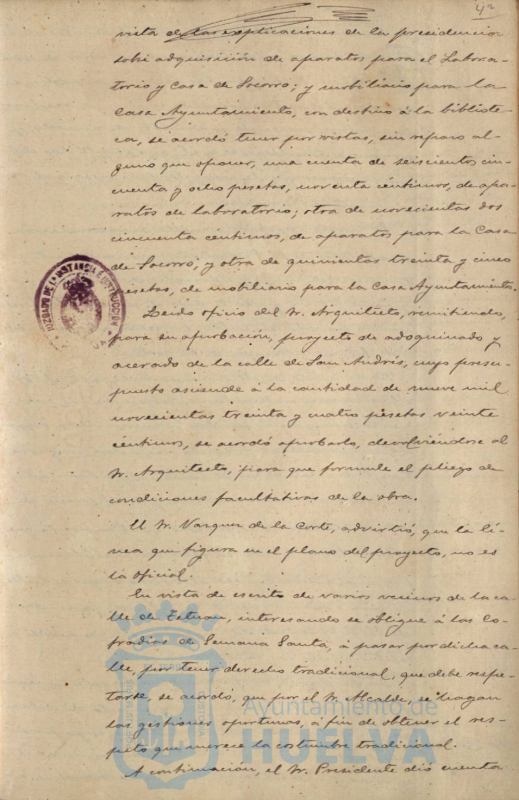 42
vista de las explicaciones de la presidencia
sobre adquisición de aparatos para el Labora-
torio y Casa de Socorro; y mobiliario para la
Casa Ayuntamiento, con destino á la bibliote-
ca, se acordó tener por vistas, sin reparo al-
guno que oponer, una cuenta de seiscientos cin-
cuenta y ocho pesetas, noventa céntimos, de apa-
ratos de laboratorio; otra de novecientas dos
cincuenta céntimos, de aparatos para la Casa
de Socorro; y otra de quinientas treinta y cinco
pesetas, de mobiliario para la Casa Ayuntamiento.
Leido oficio del Sr. Arquitecto, remitiendo,
para su aprobación, proyecto de adoquinado y
acerado de la calle de San Andrés, cuyo presu-
puesto asciende á la cantidad de nueve mil
novecientas treinta y cuatro pesetas veinte
céntimos, se acordó aprobarlo, devolviéndose al
Sr. Arquitecto, para que formule el pliego de
condiciones facultativas de la obra.
El Sr. Vazquez de la Corte, advirtió, que la lí-
nea que figura en el plano del proyecto, no es
la oficial.
En vista de escrito de varios vecinos de la ca-
lle de Tetuan, interesando se obligue á las Co-
fradías de Semana Santa, á pasar por dicha ca-
lle, por tener derecho tradicional, que debe respe-
tarse, se acordó, que por el Sr. Alcalde, se hagan
las gestiones oportunas, á fin de obtener el res-
peto que merece la costumbre tradicional.
A continuación, el Sr. Presidente dió cuenta
JUZGADO DE 1ª INSTANCIA E INSTRUCCIÓN
Ayuntamiento de
HUELVA